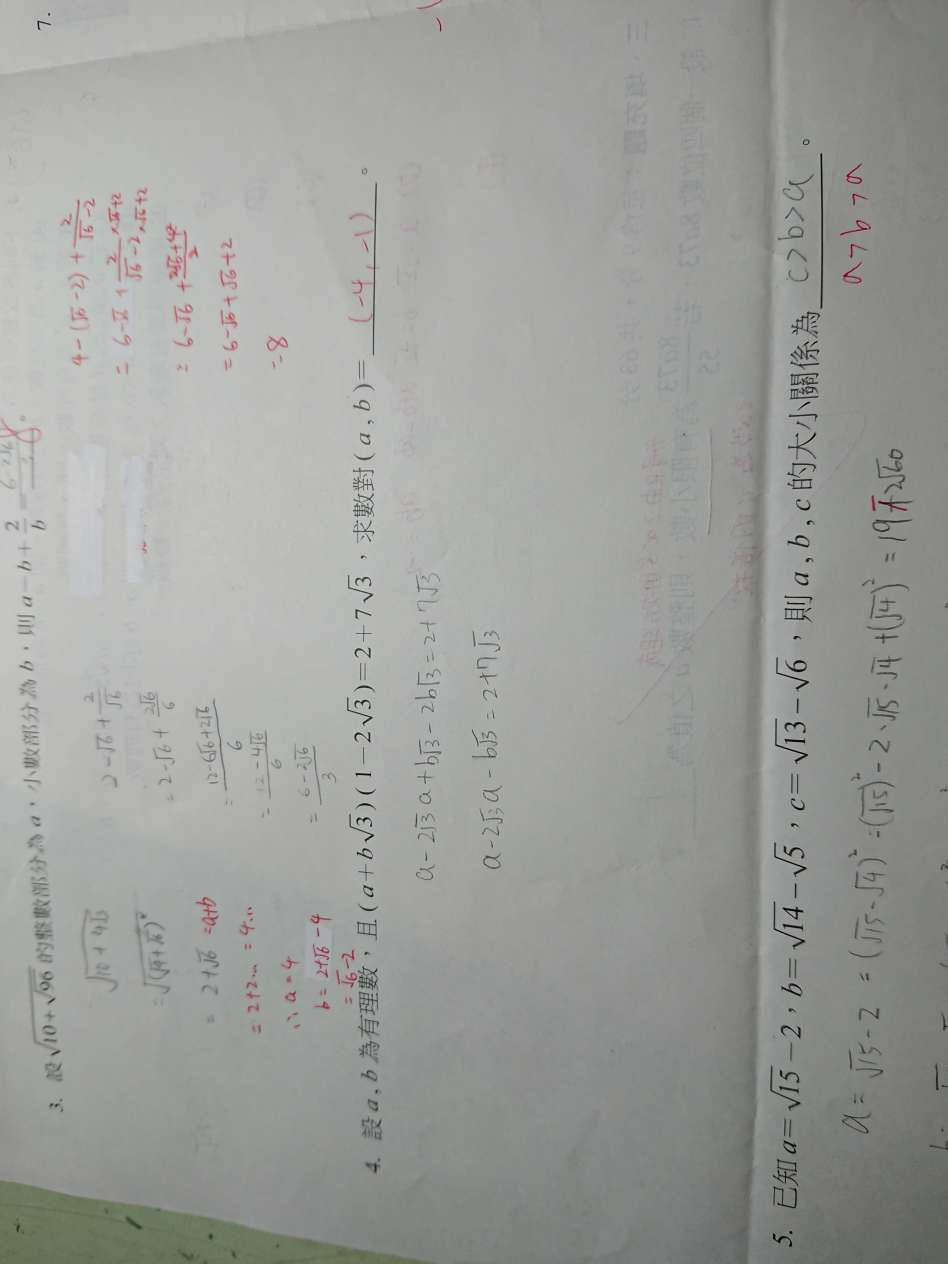 7.
3. 設√(10+√96)的整數部分為a，小數部分為b，則a−b+2/b= 8。
√(10+4√3)
= 2+√6 =a+b
= 2+2... = 4...
∴ a=4
b=2+√6-4
=√6-2
2-√6+2/√6
=2-√6+2√6/6
=(12-6√6+2√6)/6
=(12-4√6)/6
=(6-2√6)/3
4-(√6-2)+2/(√6-2)
=6-√6+2/(√6-2) ×√6+2/×√6+2
=6-√6+√6+2
-8
4. 設a,b為有理數，且(a+b√3)(1−2√3)=2+7√3，求數對(a,b)= (-4,-1) 。
a-2√3a+b√3-2b√3=2+7√3
a-2√3a-b√3=2+7√3
5. 已知a=√15−2，b=√14−√5，c=√13−√6，則a,b,c的大小關係為 c>b>a 。
a>b>a
a=√15-2 =(√15-√4)²=(√15)²-2·√15·√4+(√4)²=19-2√60
b=